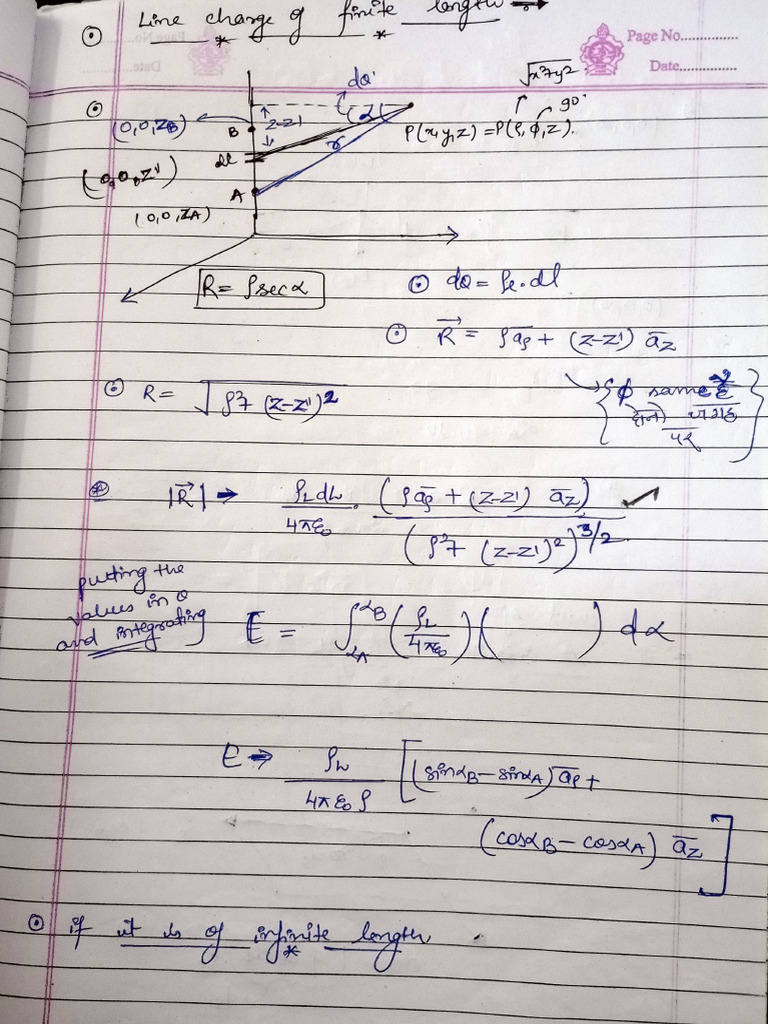 Line charge of finite length :→
Page No...............
Date...............
√x²+y²
dα
90°
(0,0,ZB)
B
z-z'
(α)
P(x,y,z) = P(ρ,ϕ,z).
dl
r
(0,0,z')
A
(0,0,ZA)
R = ρsecα
dQ = ρe.dl
R⃗ = ρa̅ρ + (z-z') a̅z
R = √ρ²+ (z-z')²
ϕ same है
दोनो जगह
पर
|R⃗| → ρLdL/4πε₀ . (ρa̅ρ + (z-z') a̅z)/(ρ²+ (z-z')²)^3/2
putting the
values in θ
and integrating
E = ∫αA^αB (ρL/4πε₀)( ) dα
E → ρL/4πε₀ρ [(sinαB-sinαA)a̅ρ+
(cosαB-cosαA) a̅z]
if it is of infinite length